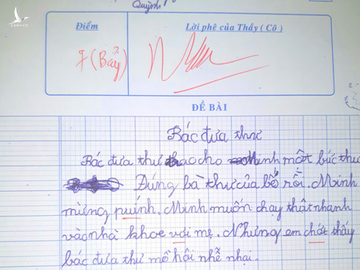 Quỳnh
Điểm
Lời phê của Thầy ( Cô )
7 (Bảy)
ĐỀ BÀI
Bác đưa thư
Bác đưa thư trao cho Minh một bức thư
Đúng bà thư của bố rồi. Minh
mừng puính. Minh muôn chạy thật nhanh
vào nhà khoe với mẹ. Nhưng em chợt thấy
bác đưa thư mồ hôi nhễ nhại.